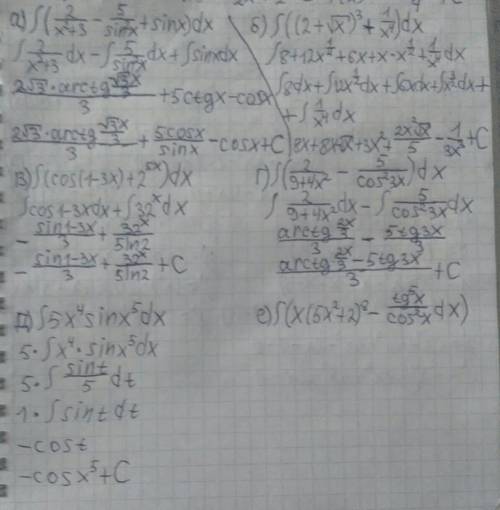 а) ∫(2/(x²+3) - 5/sin²x + sinx)dx
∫ 2/(x²+3) dx - ∫ 5/sin²x dx + ∫sinxdx
(2√3·arctg (√3x/3))/3 + 5ctgx - cosx
(2√3·arctg (√3x/3))/3 + 5cosx/sinx - cosx + C
б) ∫((2+√x)³ + 1/x⁴)dx
∫8+12x^(1/2)+6x+x·x^(1/2)+1/x⁴ dx
∫8dx+∫12x^(1/2)dx+∫6xdx+∫x^(3/2)dx+
+∫ 1/x⁴ dx
8x+8x√x+3x²+ 2x²√x/5 - 1/3x³ + C
в) ∫(cos(1-3x)+2^(5x))dx
∫cos1-3xdx+∫32ˣdx
- sin1-3x/3 + 32ˣ/5ln2
- sin1-3x/3 + 32ˣ/5ln2 + C
г) ∫(2/(9+4x²) - 5/cos²3x)dx
∫ 2/(9+4x²) dx - ∫ 5/cos²3x dx
(arctg 2x/3)/3 - 5tg3x/3
(arctg 2x/3 - 5tg3x)/3 + C
д) ∫5x⁴sinx⁵dx
5·∫x⁴·sinx⁵dx
5·∫ sint/5 dt
1·∫sintdt
-cost
-cosx⁵+C
е) ∫(x(5x²+2)⁸ - tg⁵x/cos²x dx)